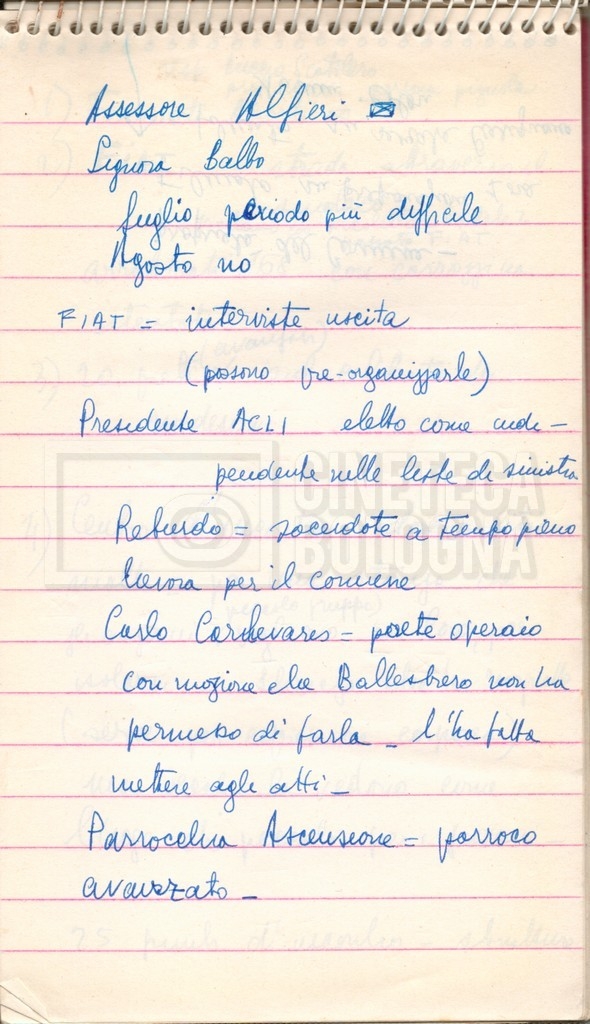 Assessore Alfieri
Signora Balbo
luglio periodo più difficile
Agosto no
FIAT = interviste uscita
(possono pre-organizzarle)
Presidente ACLI eletto come indi-
pendente nelle liste di sinistra
Reburdo = sacerdote a tempo pieno
lavora per il comune
CINETECA
BOLOGNA
Carlo = prete operaio
con mozione che Ballestrero non ha
permesso di farla - l'ha fatta
mettere agli atti -
Parrocchia Ascensione = parroco
avanzato -